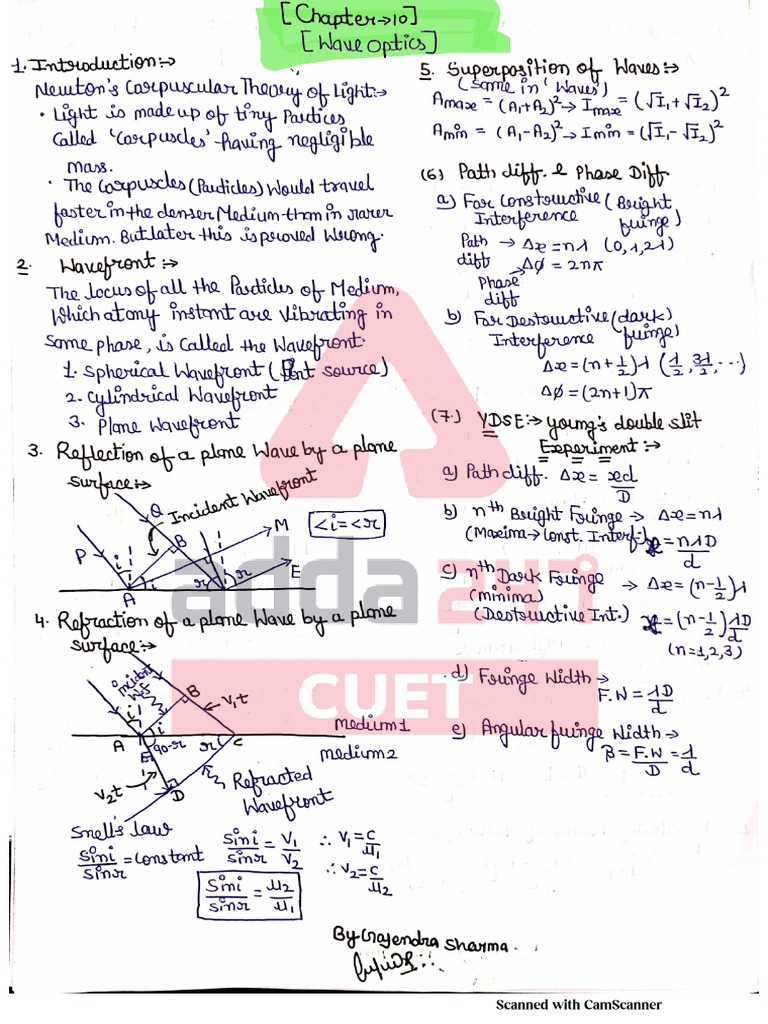 [Chapter→10]
[Wave Optics]
1. Introduction:→
Newton's Carpuscular Theory of Light:→
• Light is made up of tiny Particles
Called 'Carpuscles' having negligible
mass.
• The Carpuscles (Particles) Would travel
faster in the denser Medium than in rarer
Medium. But later this is proved Wrong.
2. Wavefront:→
The locus of all the Particles of Medium,
Which at any instant are Vibrating in
Same phase, is Called the Wavefront.
1. Spherical Wavefront (Point source)
2. Cylindrical Wavefront
3. Plane Wavefront
3. Reflection of a plane Wave by a plane
surface:→
Incident Wavefront
Q
M
<i=<r
P
i
B
E
i
r
r
A
4. Refraction of a plane Wave by a plane
surface:→
incident
W.f
B
V₁t
i
i
A
90-r
r
C
Medium1
Medium2
E
V₂t
D
Refracted
Wavefront
Snell's law
Sini/Sinr = Constant
Sini/Sinr = V₁/V₂
∴ V₁ = C/μ₁
∴ V₂ = C/μ₂
Sini/Sinr = μ₂/μ₁
5. Superposition of Waves:→
(Same in 'Waves')
Amax = (A₁+A₂)² → Imax = (√I₁+√I₂)²
Amin = (A₁-A₂)² → Imin = (√I₁-√I₂)²
(6) Path diff. & Phase Diff
a) For Constructive (Bright
Interference fringe)
Path diff → Δx = nλ (0,1,2λ)
Phase diff → Δø = 2nπ
b) For Destructive (dark)
Interference fringe)
Δx = (n+1/2)λ (λ/2, 3λ/2, ...)
Δø = (2n+1)π
(7.) YDSE:→ young's double slit
Experiment:→
a) Path diff. Δx = xd/D
b) nth Bright Fringe → Δx = nλ
(Maxima → Const. Interf.) x = nλD/d
c) nth Dark Fringe → Δx = (n-1/2)λ
(minima)
(Destructive Int.) x = (n-1/2)λD/d
(n=1,2,3)
d) Fringe Width →
F.W = λD/d
e) Angular fringe Width →
β = F.W/D = λ/d
adda247
CUET
By Gajendra Sharma.
Scanned with CamScanner